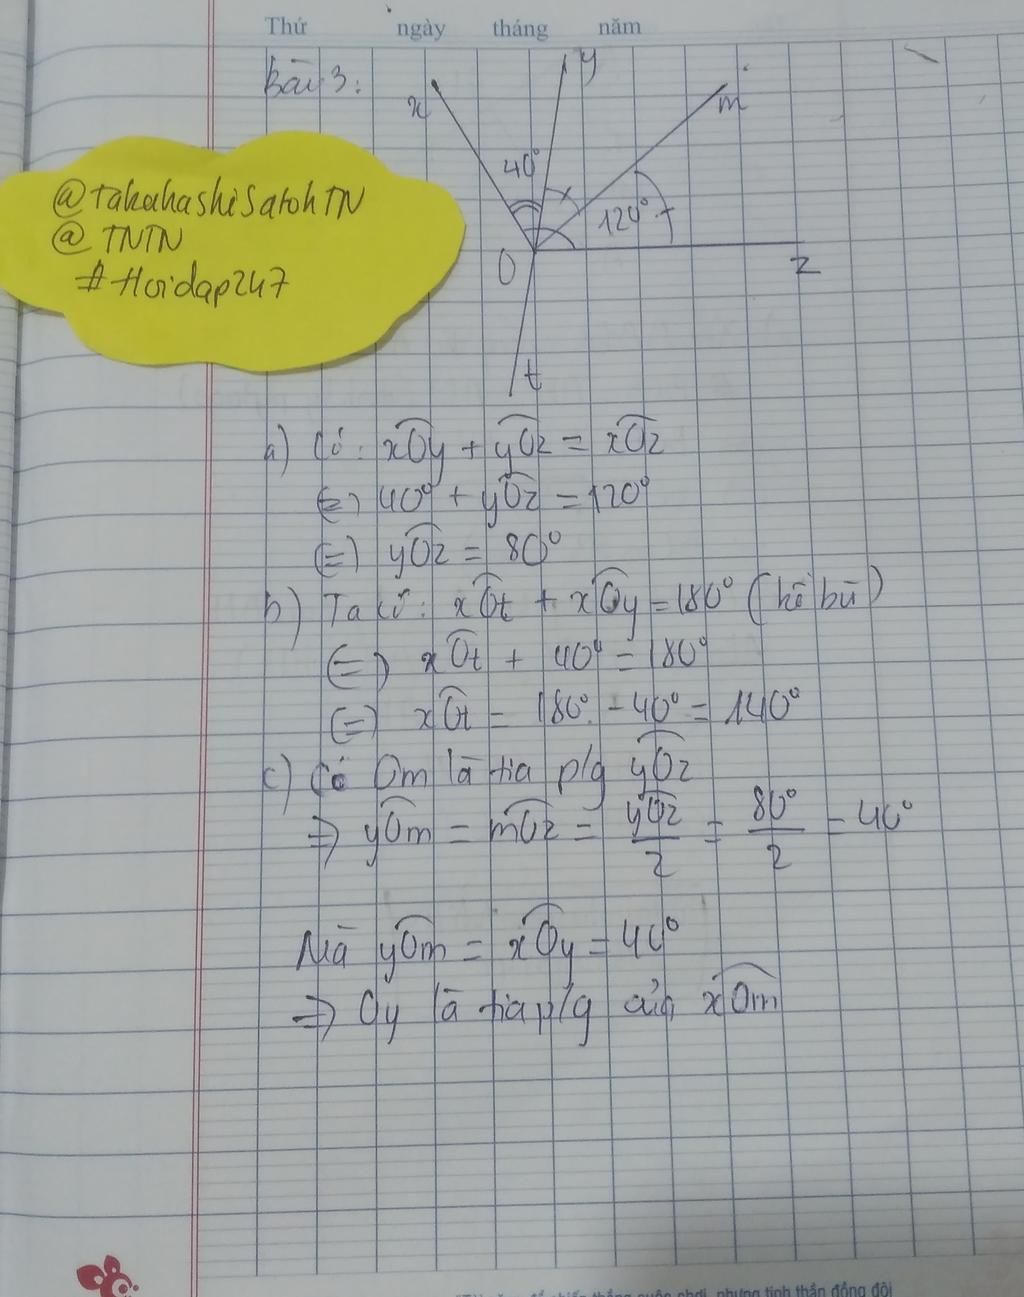 Thứ ngày tháng năm
Bài 3:
x
y
m
40°
120°
O
z
t
@TakahashiSatohTN
@TNTN
#Hoidap247
a) Có: xOy + yOz = xOz
(=) 40° + yOz = 120°
(=) yOz = 80°
b) Ta có: xOt + xOy = 180° (kề bù)
(=) xOt + 40° = 180°
(=) xOt = 180° - 40° = 140°
c) Có Om là tia p/g yOz
=> yOm = mOz = yOz/2 = 80°/2 = 40°
Mà yOm = xOy = 40°
=> Oy là tia p/g của xOm
nhưng tinh thần đồng đội